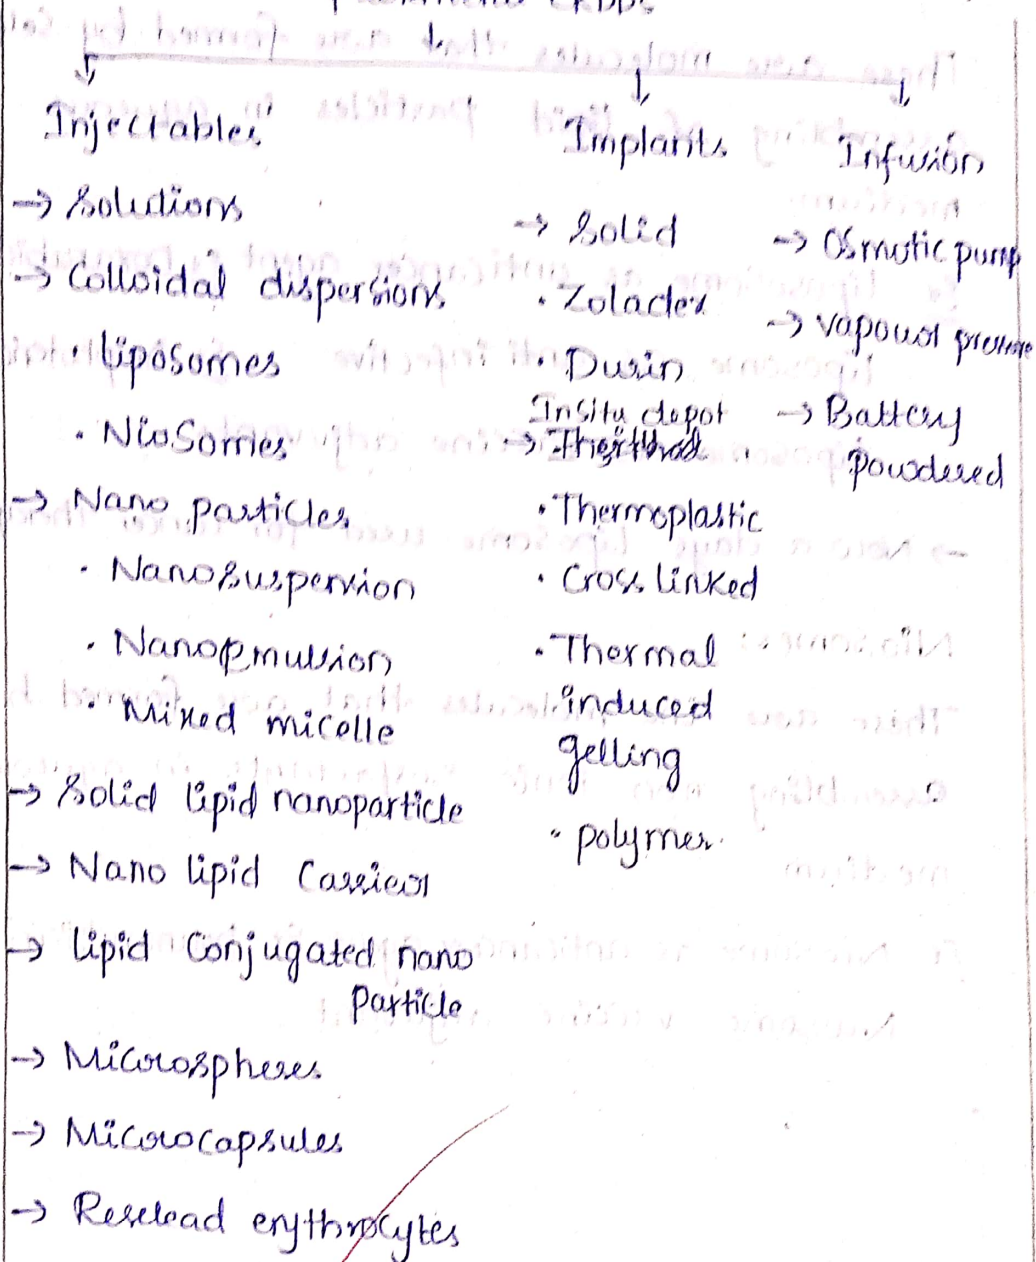 CRDDS
Injectables
→ Solutions
→ Colloidal dispersions
• Liposomes
• Niosomes
→ Nano particles
• Nanosuspension
• Nanoemulsion
• Mixed micelle
→ Solid lipid nanoparticle
→ Nano lipid Carrier
→ Lipid Conjugated nano
Particle
→ Microspheres
→ Microcapsules
→ Reseload erythrocytes
Implants
→ Solid
• Zoladex
• Durin
→ Insitu depot
• Thermoplastic
• Cross linked
• Thermal
induced
gelling
• polymer
Infusion
→ Osmotic pump
→ Vapour pressure
→ Battery
Powdered